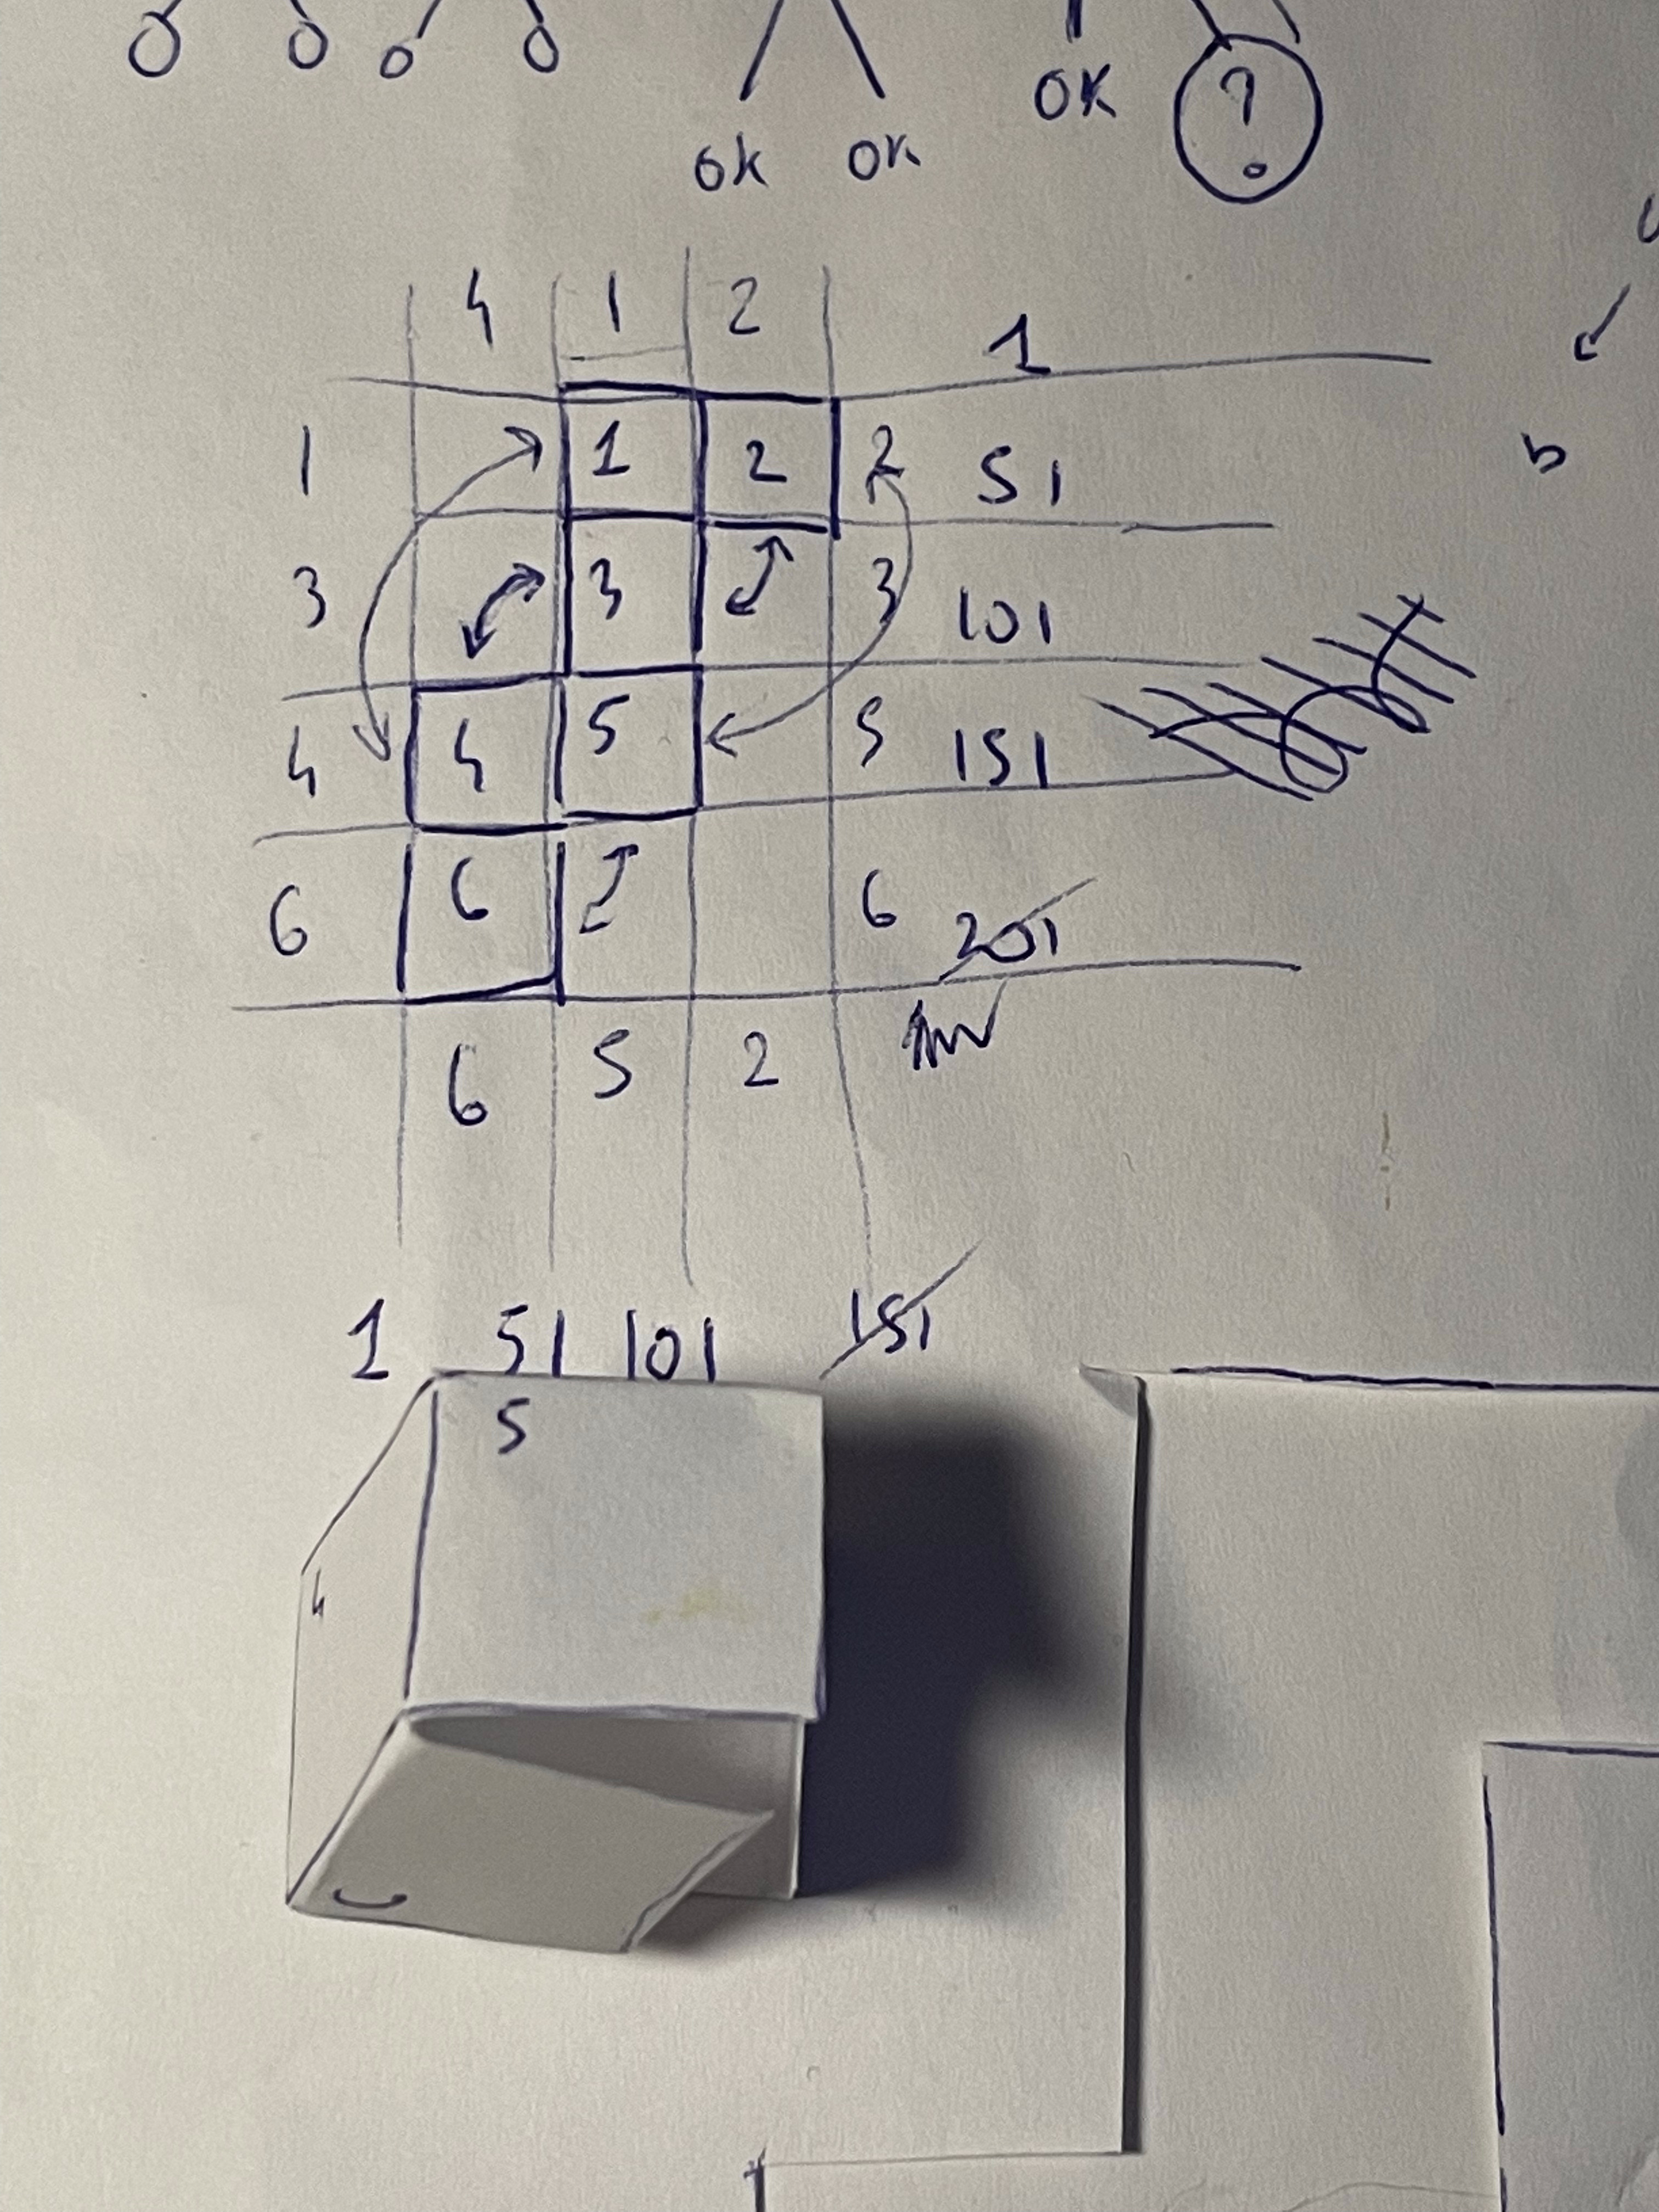 OK ?
OK OK
4 1 2
1
1 1 2 2 51
3 3 3 101
4 4 5 5 151
6 6 6 201
6 5 2
1 51 101 151
5
4